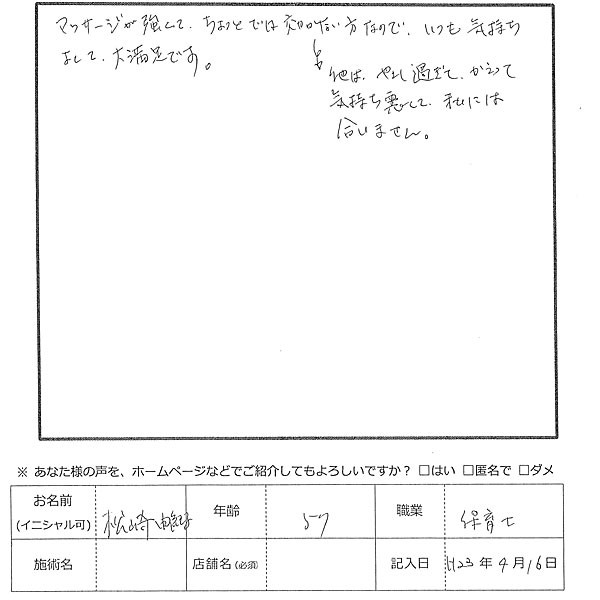 マッサージが強くて、ちょっとでは効かない方なので、いつも気持ち
よくて、大満足です。
他は、やさし過ぎて、かえって
気持ち悪くて、私には
合いません。
※ あなた様の声を、ホームページなどでご紹介してもよろしいですか？ □はい □匿名で □ダメ
お名前 (イニシャル可) 松崎 年齢 57 職業 保育士
施術名 店舗名 (必須) 記入日 H23年4月16日